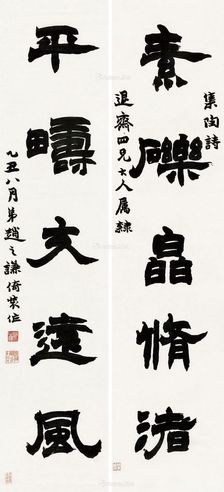 集陶詩
素礫皛脩渚
退齊四兄大人属隸
平疇交遠風
乙丑八月弟趙之謙倚裝作